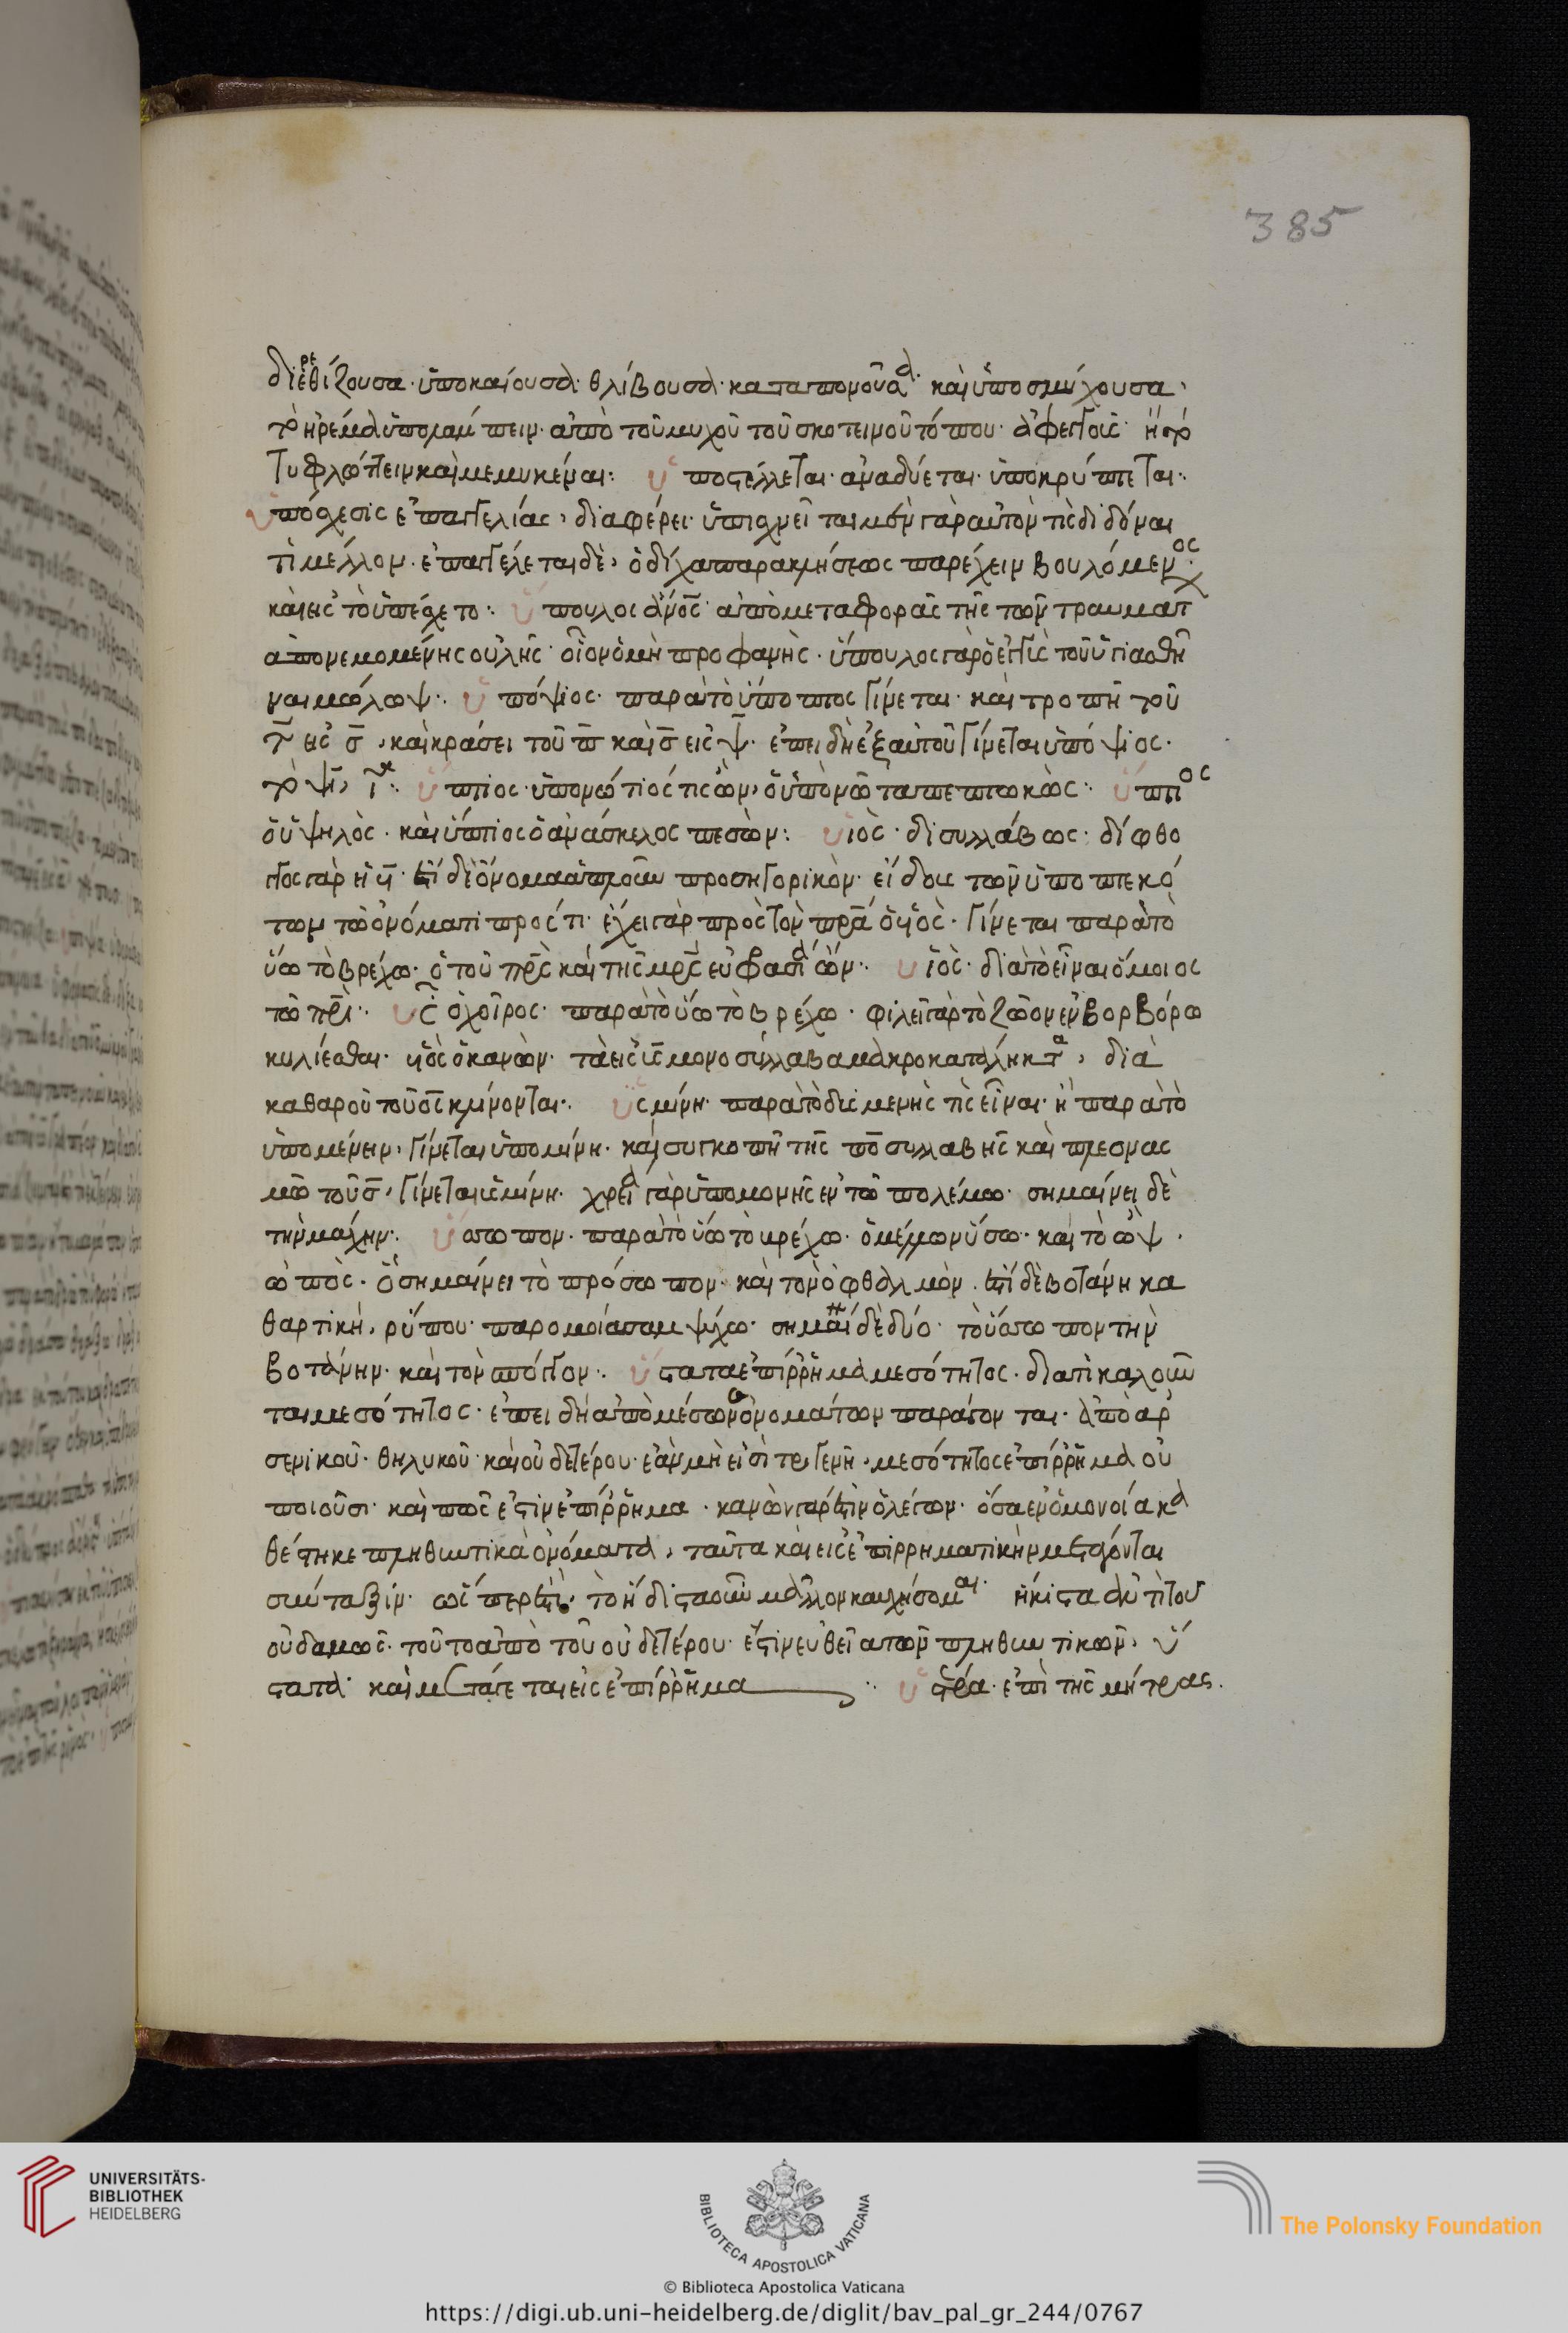 385
διερεθίζουσα· ὑποκαίουσα· θλίβουσα· καταπονοῦσα· καὶ ὑποσμύχουσα·
τὸ ἠρέμα ὑπολάμπειν· ἀπὸ τοῦ μυχοῦ τοῦ σκοτεινοῦ τόπου· ἀφεγγοῦς· ἢ τὸ
τυφλώττειν καὶ μεμυκέναι: ὑποστέλλεται· ἀναδύεται· ὑποκρύπτεται:
ὑπόσχεσις ἐπαγγελίας, διαφέρει· ὑπισχνεῖται μὲν γὰρ αὐτόν τις διδόναι
τὶ μέλλον· ἐπαγγέλεται δὲ, ὁ δίχα παρακλήσεως παρέχειν βουλόμενος·
καὶ εἰς τὸ ὑπέσχετο: ὕπουλος ἄνος· ἀπὸ μεταφορᾶς τῆς τῶν τραυμάτ
ἀπονεμομένης οὐλῆς· οἷον ὁ μὴ προφανὴς· ὕπουλος γὰρ ὁ ἐντὸς τοῦ ὑγιασθῆ
ναι μώλωψ: ὑπόψιος· παρὰ τὸ ὕποπτος γίνεται· καὶ τροπῇ τοῦ
τ εἰς σ, καὶ κράσει τοῦ π καὶ σ εἰς ψ· ἐπειδὴ ἐξ αὐτοῦ γίνεται ὑπόψιος·
τὸ ψι, ι: ὕπτιος· ὑπονώτιός τις ὢν, ὁ ὑπὸ νῶτα πεπτωκώς: ὕπτιος
ὁ ὑψηλὸς· καὶ ὕπτιος ὁ ἀνάσκελος πεσών: υἱὸς· δισυλλάβως· δίφθο
γγος γὰρ ἡ υι· ἔστι δὲ ὄνομα ἁπλοῦν προσηγορικὸν· εἶδους τῶν ὑποπτεκό
των τῷ ὀνόματι πρός τι· ἔχει γὰρ πρὸς τὸν πρα ὁ υἱὸς· γίνεται παρὰ τὸ
ὕω τὸ βρέχω· ὁ τοῦ πρς καὶ τῆς μρς εὐφρασία ὤν: υἱὸς· διὰ τὸ εἶναι ὅμοιος
τῷ πρι: ὗς ὁ χοῖρος· παρὰ τὸ ὕω τὸ βρέχω· φιλεῖ γὰρ τὸ ζῶον ἐν βορβόρω
κυλίεσθαι· υἱὸς ὁ κανὼν· τὰ εἰς υς μονοσύλλαβα μακροκατάληκτα, διὰ
καθαροῦ τοῦ ος κλίνονται: ὑσμίνη· παρὰ τὸ δυσμενής τις εἶναι· ἢ παρὰ τὸ
ὑπομένειν, γίνεται ὑπομίνη· καὶ συγκοπῇ τῆς πο συλλαβῆς καὶ πλεονας
μῶ τοῦ σ, γίνεται ὑσμίνη· χρεία γὰρ ὑπομονῆς ἐν τῶ πολέμω· σημαίνει δὲ
τὴν μάχην: ὕσσωπον· παρὰ τὸ ὕω τὸ βρέχω· ὁ μέλλων ὕσω· καὶ τὸ ὢψ·
ὠπὸς· ὃ σημαίνει τὸ πρόσωπον· καὶ τὸν ὀφθαλμὸν· ἔστι δὲ βοτάνη κα
θαρτικὴ, ῥύπου· παρομοίασαν ψύχω· σημαίνει δὲ δύο· τὸ ὕσσωπον τὴν
βοτάνην· καὶ τὸν σπόγγον: ὕστατα ἐπίρρημα μεσότητος· διατὶ καλοῦν
ται μεσότητος· ἐπειδὴ ἀπὸ μέσων ὀνομάτων παράγονται· ἀπὸ ἀρ
σενικοῦ· θηλυκοῦ· καὶ οὐδετέρου· ἐὰν μὴ εἰσὶ τρια γένη, μεσότητος ἐπίρρημα οὐ
ποιοῦσι· καὶ πῶς ἐστὶν ἐπίρρημα· κανὼν γάρ ἐστιν ὁ λέγων· ὅσα ἐν ὁμονοία κα
θέστηκε πληθυντικὰ ὀνόματα, ταῦτα καὶ εἰς ἐπιρρηματικὴν μετάγονται
σύνταξιν· ὥσπερ ἐστὶ· τὸ ἥδιστα οὖν μᾶλλον καυχήσομαι· ἥκιστα ἀντὶ τοῦ
οὐδαμῶς· τοῦτο ἀπὸ τοῦ οὐδετέρου· ἐστὶν εὐθεῖα τῶν πληθυντικῶν, ὕ
στατα· καὶ μετάγεται εἰς ἐπίρρημα: ὑστέρα· ἐπὶ τῆς μήτρας.
UNIVERSITÄTS-
BIBLIOTHEK
HEIDELBERG
BIBLIOTECA APOSTOLICA VATICANA
The Polonsky Foundation
© Biblioteca Apostolica Vaticana
https://digi.ub.uni-heidelberg.de/diglit/bav_pal_gr_244/0767